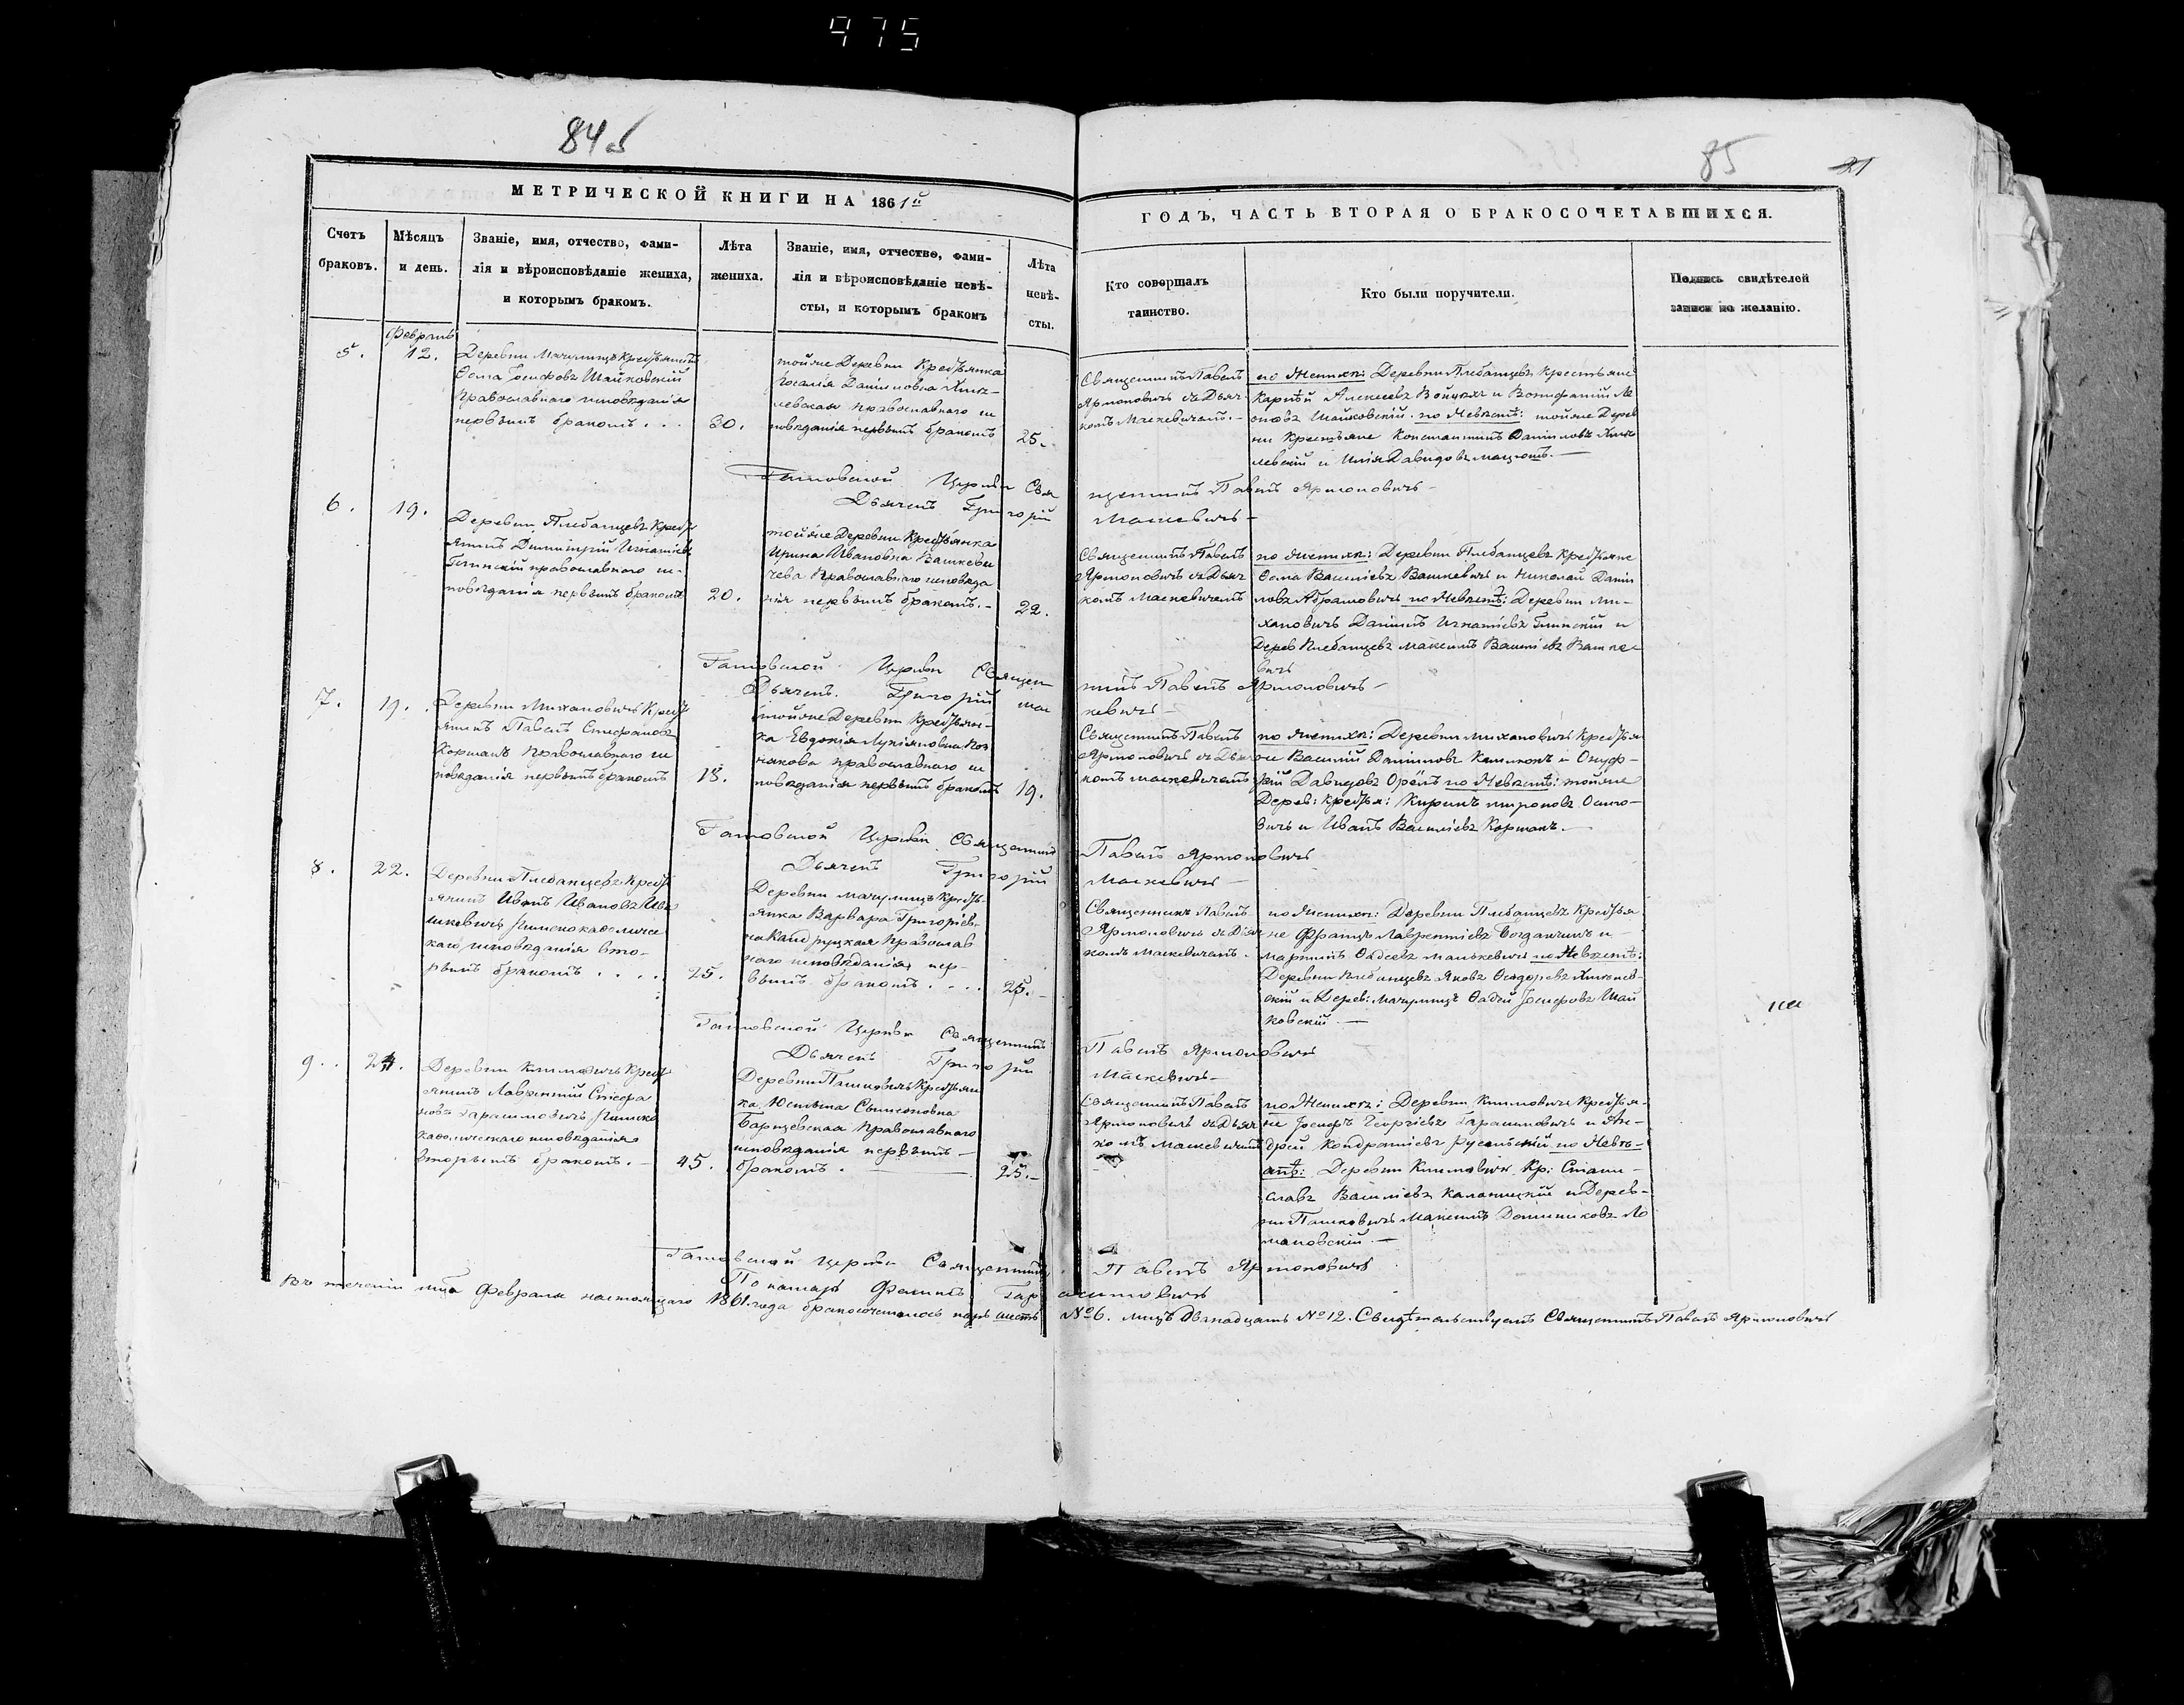 975
84 б
85
21
МЕТРИЧЕСКОЙ КНИГИ НА 1861й
ГОДЪ, ЧАСТЬ ВТОРАЯ О БРАКОСОЧЕТАВШИХСЯ.
Счетъ
браковъ.
Мѣсяцъ
и день.
Званіе, имя, отчество, фами-
лія и вѣроисповѣданіе жениха,
и которымъ бракомъ.
Лѣта
жениха.
Званіе, имя, отчество, фами-
лія и вѣроисповѣданіе невѣ-
сты, и которымъ бракомъ
Лѣта
невѣ-
сты.
Кто совершалъ
таинство.
Кто были поручители.
Подпись свидѣтелей
записи по желанію.
5.
Февраль
12.
Деревни Мачулищъ Крестьянинъ
Ѳома Іосифовъ Шайковскій
Православнаго исповѣданія
первымъ бракомъ . . .
30.
тойже Деревни Крестьянка
Розалія Даниловна Хмѣ-
левская Православнаго ис
повѣданія первымъ бракомъ
25.
Священникъ Павелъ
Ярмоловичъ съ Дьяч
комъ Маскевичемъ. -
по Женихѣ: Деревни Плебанцевъ Крестьяне
Карпѣй Алексѣевъ Войцехъ и Вонифатій
Шайковскій. по Невѣстѣ: тойже Дерев
ни Крестьяне Константинъ Даніиловъ Хмѣ
левскій и Илія Давидовъ
Гатовской Церкви Свя
щенникъ Павелъ Ярмоловичъ
Дьячекъ Григорій
Маскевичъ
6.
19.
Деревни Плебанцевъ Крест
янинъ Димитрій Игнатіевъ
Глинскій православнаго ис-
повѣданія первымъ бракомъ
20.
тойже Деревни Крестьянка
Ирина Ивановна Вашкеви
чева Православнаго исповѣда
нія первымъ бракомъ. -
22.
Священникъ Павелъ
Ярмоловичъ съ Дьяч
комъ Маскевичемъ
по женихѣ: Деревни Плебанцевъ Крестьяне
Ѳома Василіевъ Вашкевичъ и Николай Даніи
ловъ Абрамовичъ по Невѣстѣ: Деревни Ми-
хановичъ Даніилъ Игнатіевъ Глинскій и
Дерев Плебанцевъ Максимъ Василіевъ Вашке
вичъ
Гатовской Церкви Священ
никъ Павелъ Ярмоловичъ
Дьячекъ. Григорій Мас
кевичъ
7.
19.
Деревни Михановичъ Крест
янинъ Павелъ Стефановъ
Коржанъ Православнаго ис
повѣданія первымъ бракомъ
18.
тойже Деревни Крестьян-
ка Евдокія Лукіяновна Коз
някова православнаго ис
повѣданія первымъ бракомъ
19.
Священникъ Павелъ
Ярмоловичъ съ Дьяч
комъ Маскевичемъ
по женихѣ: Деревни Михановичъ Крестья
не Василій Даніиловъ и Онуф-
рій Давидовъ Орёлъ по Невѣстѣ: тойже
Дерев: крестья: Кирилъ Мироновъ
вичъ и Иванъ Василіевъ Коржанъ. -
Гатовской Церкви Священникъ
Павелъ Ярмоловичъ
Дьячекъ Григорій
Маскевичъ
8.
22.
Деревни Плебанцевъ Крест
янинъ Иванъ Ивановъ Ива
шкевичъ Римскокатоличе
каго исповѣданія вто-
рымъ бракомъ . . . .
25.
Деревни Мачулищъ Кресть
янка Варвара Григоріев-
на Кандруцкая Православ
наго исповѣданія пер-
вымъ бракомъ . . . .
25. -
Священникъ Павелъ
Ярмоловичъ съ Дьяч
комъ Маскевичемъ -
по женихѣ: Деревни Плебанцевъ Крестья
не Францъ Лаврентіевъ Богданчикъ и -
Мартинъ Ѳадеевъ Манькевичъ по Невѣстѣ:
Деревни Плебанцевъ Яковъ Ѳеодоровъ Хмѣлев-
скій и Дерев: Мачулищъ Ѳадей Іосифовъ Шай
ковскій. -
Гатовской Церкви Священникъ
Павелъ Ярмоловичъ
Дьячекъ Григорій
Маскевичъ
9.
24.
Деревни Климовичъ Крест
янинъ Лаврентій Стефа
новъ Гарашимовичъ Римско
католическаго исповѣданія
вторымъ бракомъ. -
45.
Деревни Пашковичъ Крестьян
ка Юстына Сымеоновна
Барцевская Православнаго
исповѣданія первымъ -
бракомъ. -
25. -
Священникъ Павелъ
Ярмоловичъ съ Дьяч
комъ Маскевичемъ
по Женихѣ: Деревни Климовичъ Крестья-
не Іосифъ Георгіевъ Гарашимовичъ и Ан-
дрей Кондратіевъ по Невѣ-
стѣ: Деревни Климовичъ Кр: Стани-
славъ Василіевъ и Дерев-
ни Пашковичъ Максимъ Доминиковъ
мановскій. -
Гатовской Церкви Священникъ
Павелъ Ярмоловичъ
Пономарь Филипъ Гар
ашимовичъ
Въ теченіи мца Февраля настоящаго 1861 года бракосочеталось паръ шесть
№ 6. лицъ Двѣнадцать № 12. Свидѣтельствуетъ Священникъ Павелъ Ярмоловичъ